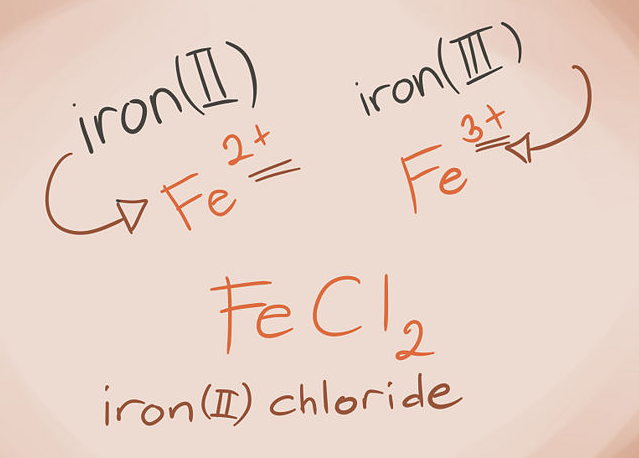 iron(II) iron(III)
Fe²⁺ Fe³⁺
FeCl₂
iron(II) chloride